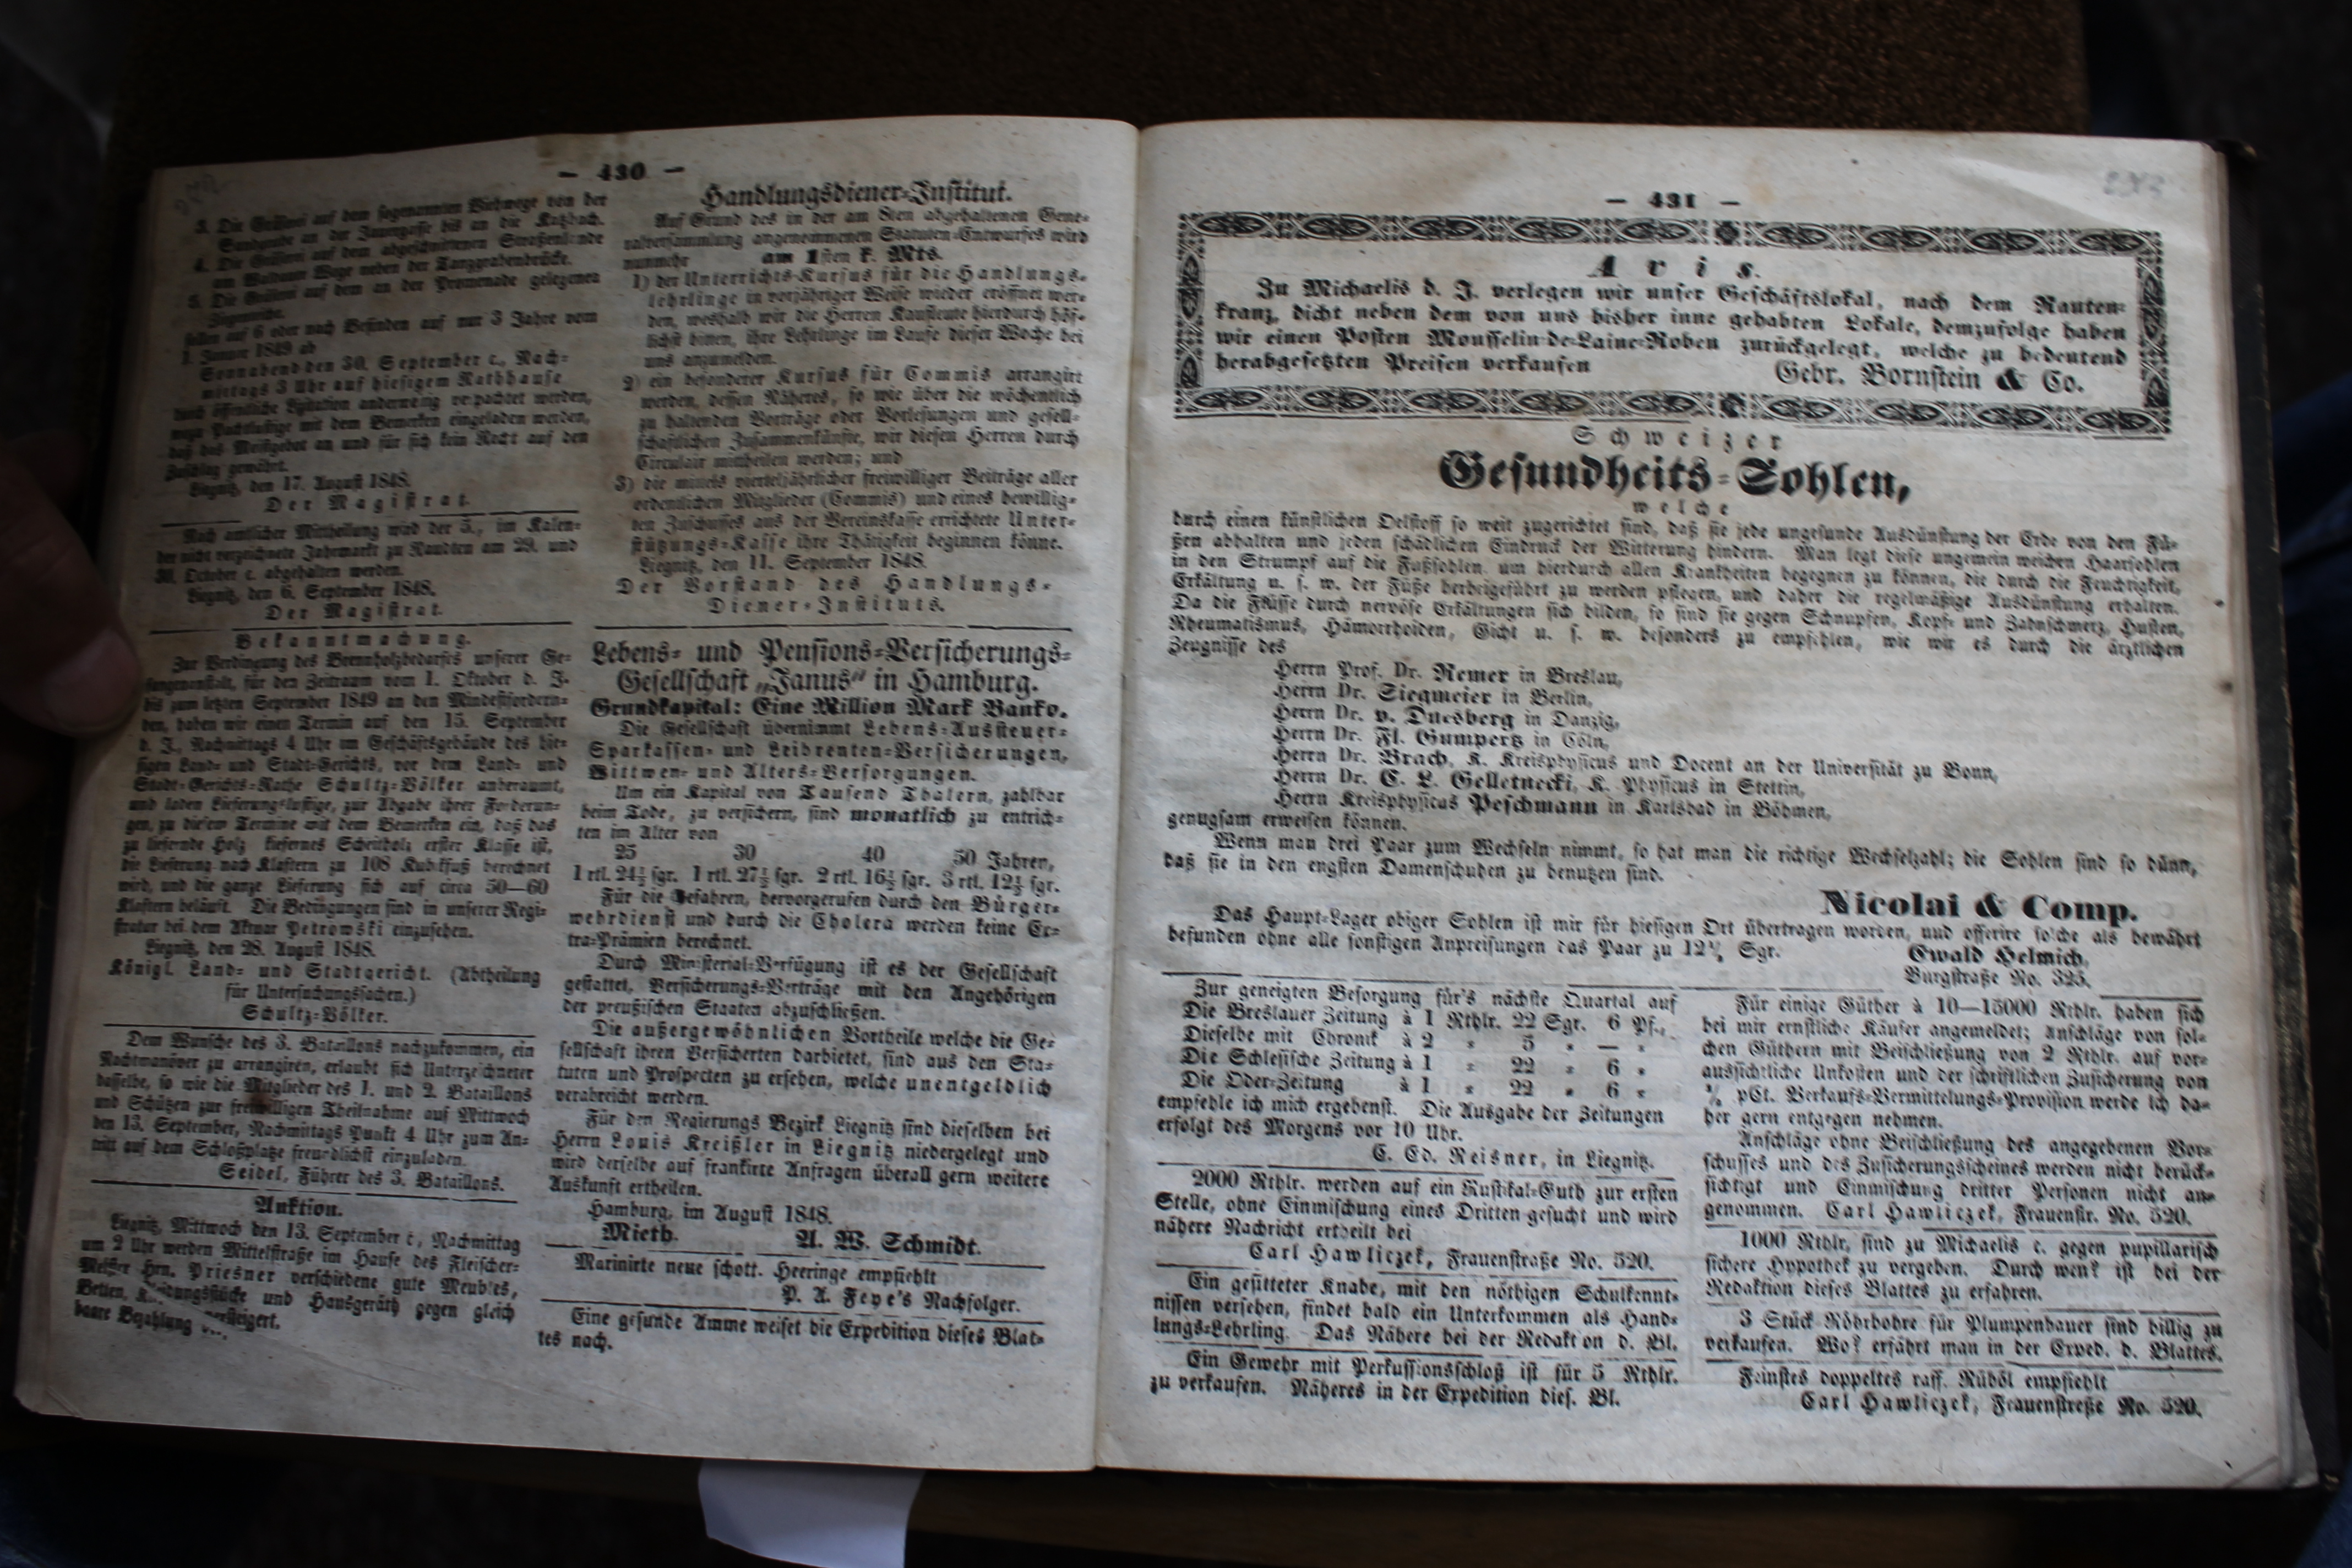 — 430 —
3. Die Gräserei auf dem sogenannten Viehwege von der
Sandgrube an der Jauergasse bis an die Katzbach.
4. Die Gräserei auf dem abgeschnittenen Straßenlande
am Waldauer Wege neben der Tanzgrabenbrücke.
5. Die Gräserei auf dem an der Promenade gelegenen
sollen auf 6 oder nach Befinden auf nur 3 Jahre vom
1. Januar 1849 ab
Sonnabend den 30. September c., Nach-
mittags 3 Uhr auf hiesigem Rathhause
durch öffentliche Lizitation anderweitig verpachtet werden,
wozu Pachtlustige mit dem Bemerken eingeladen werden,
daß das Meistgebot an und für sich kein Recht auf den
Zuschlag gewährt.
Liegnitz, den 17. August 1848.
Der Magistrat.
Nach amtlicher Mittheilung wird der 5., im Kalen-
der nicht verzeichnete Jahrmarkt zu Raudten am 29. und
30. October c. abgehalten werden.
Liegnitz, den 6. September 1848.
Der Magistrat.
Bekanntmachung.
Zur Verdingung des Brennholzbedarfes unserer Ge-
fangenanstalt, für den Zeitraum vom 1. Oktober d. J.
bis zum letzten September 1849 an den Mindestfordern-
den, haben wir einen Termin auf den 15. September
d. J., Nachmittags 4 Uhr im Geschäftsgebäude des hie-
sigen Land- und Stadt-Gerichts, vor dem Land- und
Stadt-Gerichts-Rathe Schultz-Völker anberaumt,
und laden Lieferungslustige, zur Abgabe ihrer Forderun-
gen, zu diesem Termine mit dem Bemerken ein, daß das
zu liefernde Holz kiefernes Scheitholz erster Klasse ist,
die Lieferung nach Klaftern zu 108 Kubikfuß berechnet
wird, und die ganze Lieferung sich auf circa 50—60
Klaftern beläuft. Die Bedingungen sind in unserer Regi-
stratur bei dem Aktuar Petrowski einzusehen.
Liegnitz, den 28. August 1848.
Königl. Land- und Stadtgericht. (Abtheilung
für Untersuchungssachen.)
Schultz-Völker.
Dem Wunsche des 3. Bataillons nachzukommen, ein
Nachtmanöver zu arrangiren, erlaubt sich Unterzeichneter
dasselbe, so wie die Mitglieder des 1. und 2. Bataillons
und Schützen zur freiwilligen Theilnahme auf Mittwoch
den 13. September, Nachmittags Punkt 4 Uhr zum An-
tritt auf dem Schloßplatze freundlichst einzuladen.
Seidel, Führer des 3. Bataillons.
Auktion.
Liegnitz, Mittwoch den 13. September c., Nachmittag
um 2 Uhr werden Mittelstraße im Hause des Fleischer-
Meister Hrn. Priesner verschiedene gute Meubles,
Betten, Kleidungsstücke und Hausgeräth gegen gleich
baare Bezahlung versteigert.
Handlungsdiener-Institut.
Auf Grund des in der am 8ten abgehaltenen Gene-
ralversammlung angenommenen Statuten-Entwurfes wird
nunmehr am 1sten k. Mts.
1) der Unterrichts-Kursus für die Handlungs-
lehrlinge in vorjähriger Weise wieder eröffnet wer-
den, weshalb wir die Herren Kaufleute hierdurch höf-
lichst bitten, ihre Lehrlinge im Laufe dieser Woche bei
uns anzumelden.
2) ein besonderer Kursus für Commis arrangirt
werden, dessen Näheres, so wie über die wöchentlich
zu haltenden Vorträge oder Vorlesungen und gesell-
schaftlichen Zusammenkünfte, wir diesen Herren durch
Circulair mittheilen werden; und
3) die mittels vierteljährlicher freiwilliger Beiträge aller
ordentlichen Mitglieder (Commis) und eines bewillig-
ten Zuschusses aus der Vereinskasse errichtete Unter-
stützungs-Kasse ihre Thätigkeit beginnen könne.
Liegnitz, den 11. September 1848.
Der Vorstand des Handlungs-
Diener-Instituts.
Lebens- und Pensions-Versicherungs-
Gesellschaft „Janus“ in Hamburg.
Grundkapital: Eine Million Mark Banko.
Die Gesellschaft übernimmt Lebens-Aussteuer-
Sparkassen- und Leibrenten-Versicherungen,
Wittwen- und Alters-Versorgungen.
Um ein Kapital von Tausend Thalern, zahlbar
beim Tode, zu versichern, sind monatlich zu entrich-
ten im Alter von
25 30 40 50 Jahren,
1 rtl. 24½ sgr. 1 rtl. 27½ sgr. 2 rtl. 16½ sgr. 3 rtl. 12½ sgr.
Für die Gefahren, hervorgerufen durch den Bürger-
wehrdienst und durch die Cholera werden keine Ex-
tra-Prämien berechnet.
Durch Ministerial-Verfügung ist es der Gesellschaft
gestattet, Versicherungs-Verträge mit den Angehörigen
der preußischen Staaten abzuschließen.
Die außergewöhnlichen Vortheile welche die Ge-
sellschaft ihren Versicherten darbietet, sind aus den Sta-
tuten und Prospecten zu ersehen, welche unentgeldlich
verabreicht werden.
Für den Regierungs Bezirk Liegnitz sind dieselben bei
Herrn Louis Kreißler in Liegnitz niedergelegt und
wird derselbe auf frankirte Anfragen überall gern weitere
Auskunft ertheilen.
Hamburg, im August 1848.
Mieth. A. W. Schmidt.
Marinirte neue schott. Heeringe empfiehlt
P. A. Feye's Nachfolger.
Eine gesunde Amme weiset die Expedition dieses Blat-
tes nach.
— 431 —
Avis.
Zu Michaelis d. J. verlegen wir unser Geschäftslokal, nach dem Rauten-
kranz, dicht neben dem von uns bisher inne gehabten Lokale, demzufolge haben
wir einen Posten Mousselin-de-Laine-Roben zurückgelegt, welche zu bedeutend
herabgesetzten Preisen verkaufen
Gebr. Bornstein & Co.
Schweizer
Gesundheits-Sohlen,
welche
durch einen künstlichen Oelstoff so weit zugerichtet sind, daß sie jede ungesunde Ausdünstung der Erde von den Fü-
ßen abhalten und jeden schädlichen Eindruck der Witterung hindern. Man legt diese ungemein weichen Haarsohlen
in den Strumpf auf die Fußsohlen, um hierdurch allen Krankheiten begegnen zu können, die durch die Feuchtigkeit,
Erkältung u. s. w. der Füße herbeigeführt zu werden pflegen, und daher die regelmäßige Ausdünstung erhalten.
Da die Flüsse durch nervöse Erkältungen sich bilden, so sind sie gegen Schnupfen, Kopf- und Zahnschmerz, Husten,
Rheumatismus, Hämorrhoiden, Gicht u. s. w. besonders zu empfehlen, wie wir es durch die ärztlichen
Zeugnisse des
Herrn Prof. Dr. Remer in Breslau,
Herrn Dr. Siegmeier in Berlin,
Herrn Dr. v. Duesberg in Danzig,
Herrn Dr. Fl. Gumpertz in Cöln,
Herrn Dr. Brach, K. Kreisphysicus und Docent an der Universität zu Bonn,
Herrn Dr. C. L. Gelletnecki, K. Physicus in Stettin,
Herrn Kreisphysicas Peschmann in Karlsbad in Böhmen,
genugsam erweisen können.
Wenn man drei Paar zum Wechseln nimmt, so hat man die richtige Wechselzahl; die Sohlen sind so dünn,
daß sie in den engsten Damenschuhen zu benutzen sind.
Nicolai & Comp.
Das Haupt-Lager obiger Sohlen ist mir für hiesigen Ort übertragen worden, und offerire solche als bewährt
befunden ohne alle sonstigen Anpreisungen das Paar zu 12½ Sgr.
Ewald Helmich,
Burgstraße No. 325.
Zur geneigten Besorgung für's nächste Quartal auf
Die Breslauer Zeitung à 1 Rthlr. 22 Sgr. 6 Pf.,
Dieselbe mit Chronik à 2 „ 5 „ — „
Die Schlesische Zeitung à 1 „ 22 „ 6 „
Die Oder-Zeitung à 1 „ 22 „ 6 „
empfehle ich mich ergebenst. Die Ausgabe der Zeitungen
erfolgt des Morgens vor 10 Uhr.
C. Ed. Reisner, in Liegnitz.
2000 Rthlr. werden auf ein Rustikal-Guth zur ersten
Stelle, ohne Einmischung eines Dritten gesucht und wird
nähere Nachricht ertheilt bei
Carl Hawliczek, Frauenstraße No. 520.
Ein gesitteter Knabe, mit den nöthigen Schulkennt-
nissen versehen, findet bald ein Unterkommen als Hand-
lungs-Lehrling. Das Nähere bei der Redaktion d. Bl.
Ein Gewehr mit Perkussionsschloß ist für 5 Rthlr.
zu verkaufen. Näheres in der Expedition dies. Bl.
Für einige Güther à 10—15000 Rthlr. haben sich
bei mir ernstliche Käufer angemeldet; Anschläge von sol-
chen Güthern mit Beischließung von 2 Rthlr. auf vor-
aussichtliche Unkosten und der schriftlichen Zusicherung von
pCt. Verkaufs-Vermittelungs-Provision werde ich da-
her gern entgegen nehmen.
Anschläge ohne Beischließung des angegebenen Vor-
schusses und des Zusicherungsscheines werden nicht berück-
sichtigt und Einmischung dritter Personen nicht an-
genommen. Carl Hawliczek, Frauenstr. No. 520.
1000 Rthlr. sind zu Michaelis c. gegen pupillarisch
sichere Hypothek zu vergeben. Durch wen? ist bei der
Redaktion dieses Blattes zu erfahren.
3 Stück Röhrbohre für Plumpenbauer sind billig zu
verkaufen. Wo? erfährt man in der Exped. d. Blattes.
Feinstes doppeltes raff. Rüböl empfiehlt
Carl Hawliczek, Frauenstraße No. 520.